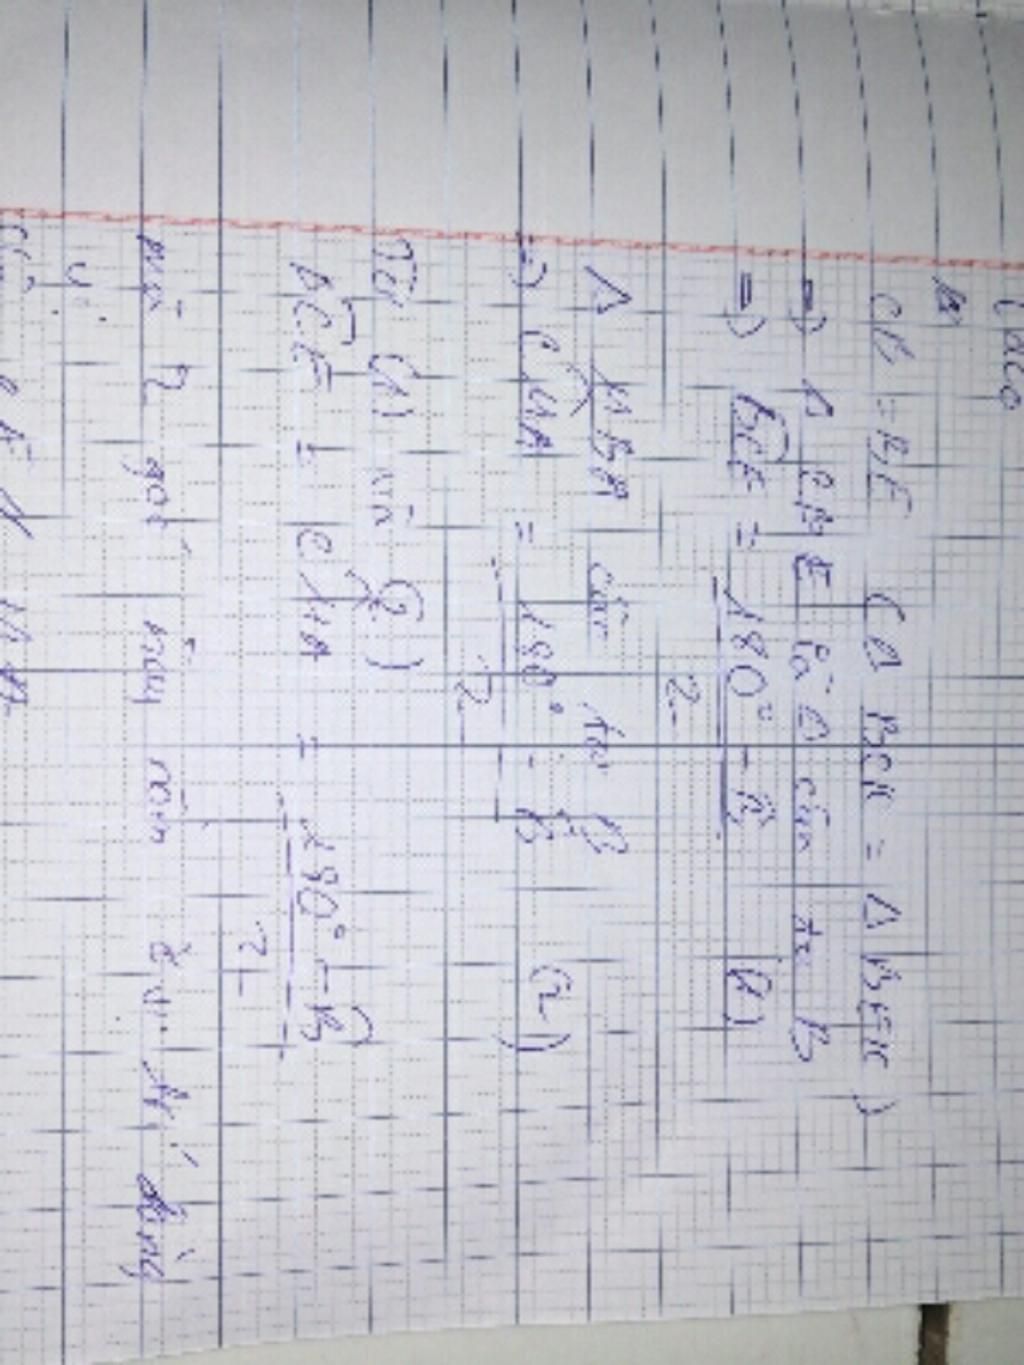 = BE (Δ BCK = Δ BEK)
=> Δ CBE là Δ cân tại B
=> BCE = 180° - B / 2 (1)
Δ MBA cân tại B
=> CMA = 180° - B / 2 (2)
Từ (1) và (2)
BCE = CMA = 180° - B / 2
mà 2 góc này nằm ở vị trí đồng
vị